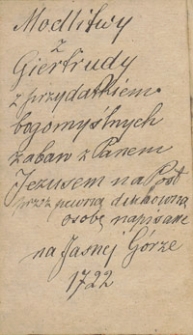 Modlitwy
z
Giertrudy
z przydatkiem
bogomyślnych
zabaw z Panem
Jezusem na Post
przez pewną duchowną
osobę napisane
na Jasnej Górze
1722